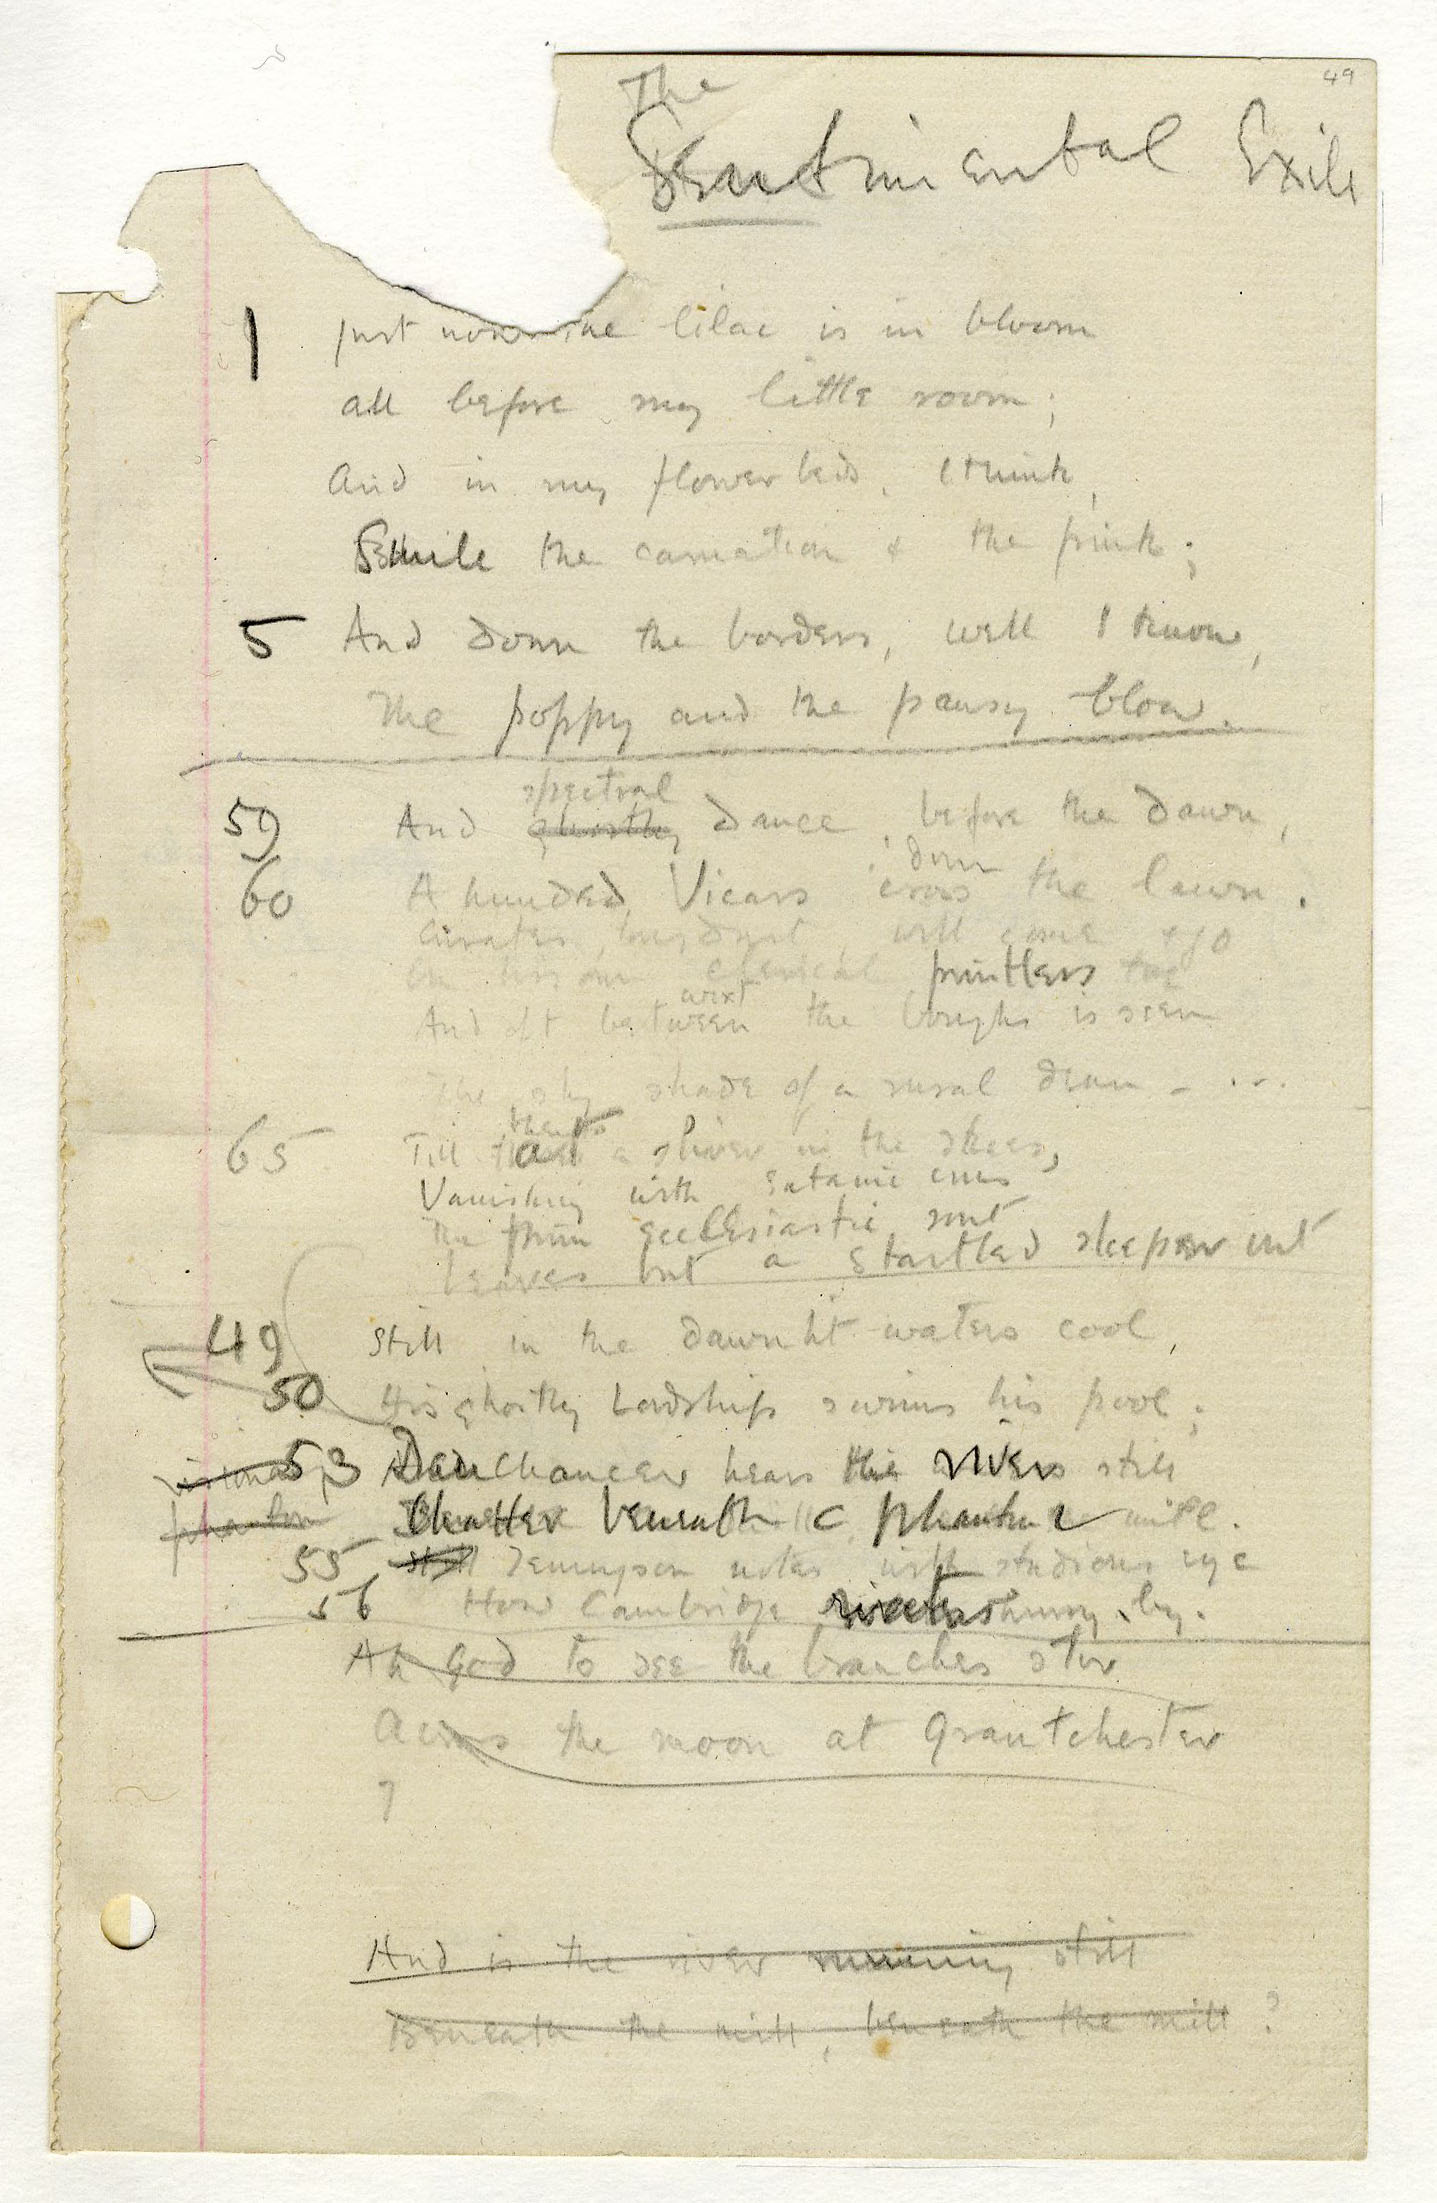 49
The
Sentimental Exile
1 Just now the lilac is in bloom
all before my little room;
And in my flower beds, I think,
Smile the carnation & the pink;
5 And down the borders, well I know,
The poppy and the pansy blow.
spectral
59 And ghostly Dance, before the Dawn,
down
60 A hundred Vicars cross the lawn.
Curates, long Dust, will come & go
On lissom clerical printless toe
twixt
And oft between the boughs is seen
The sly shade of a rural dean - ...
65 Till at a shiver in the skies,
Vanishing with Satanic cries
The prim ecclesiastic rout
Leaves but a startled sleeper out
49 Still in the dawnlit waters cool,
50 His ghostly Lordship swims his pool;
53 Dan Chaucer hears the river still
phantom Chatter beneath a phantom mill.
55 Still Tennyson notes, with studious eye
56 How Cambridge waters hurry by.
Ah God to see the branches stir
Across the moon at Grantchester
And is the river running still
Beneath the mill, beneath the mill?